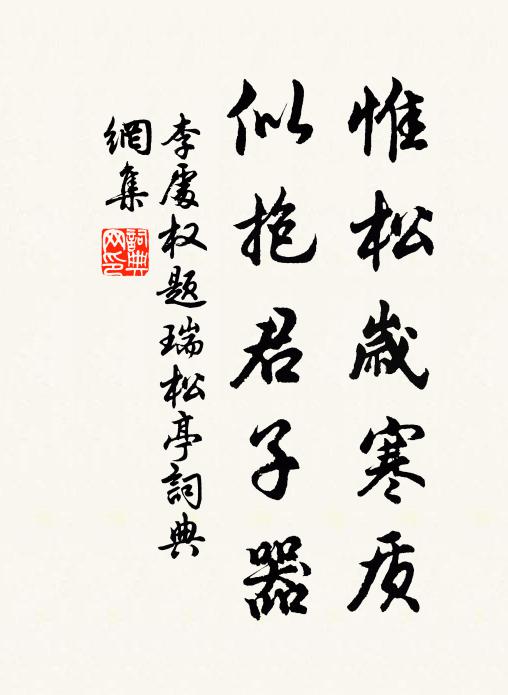 惟松歲寒质
似抱君子器
李處权题瑞松亭詞典
網集
詞典
网印